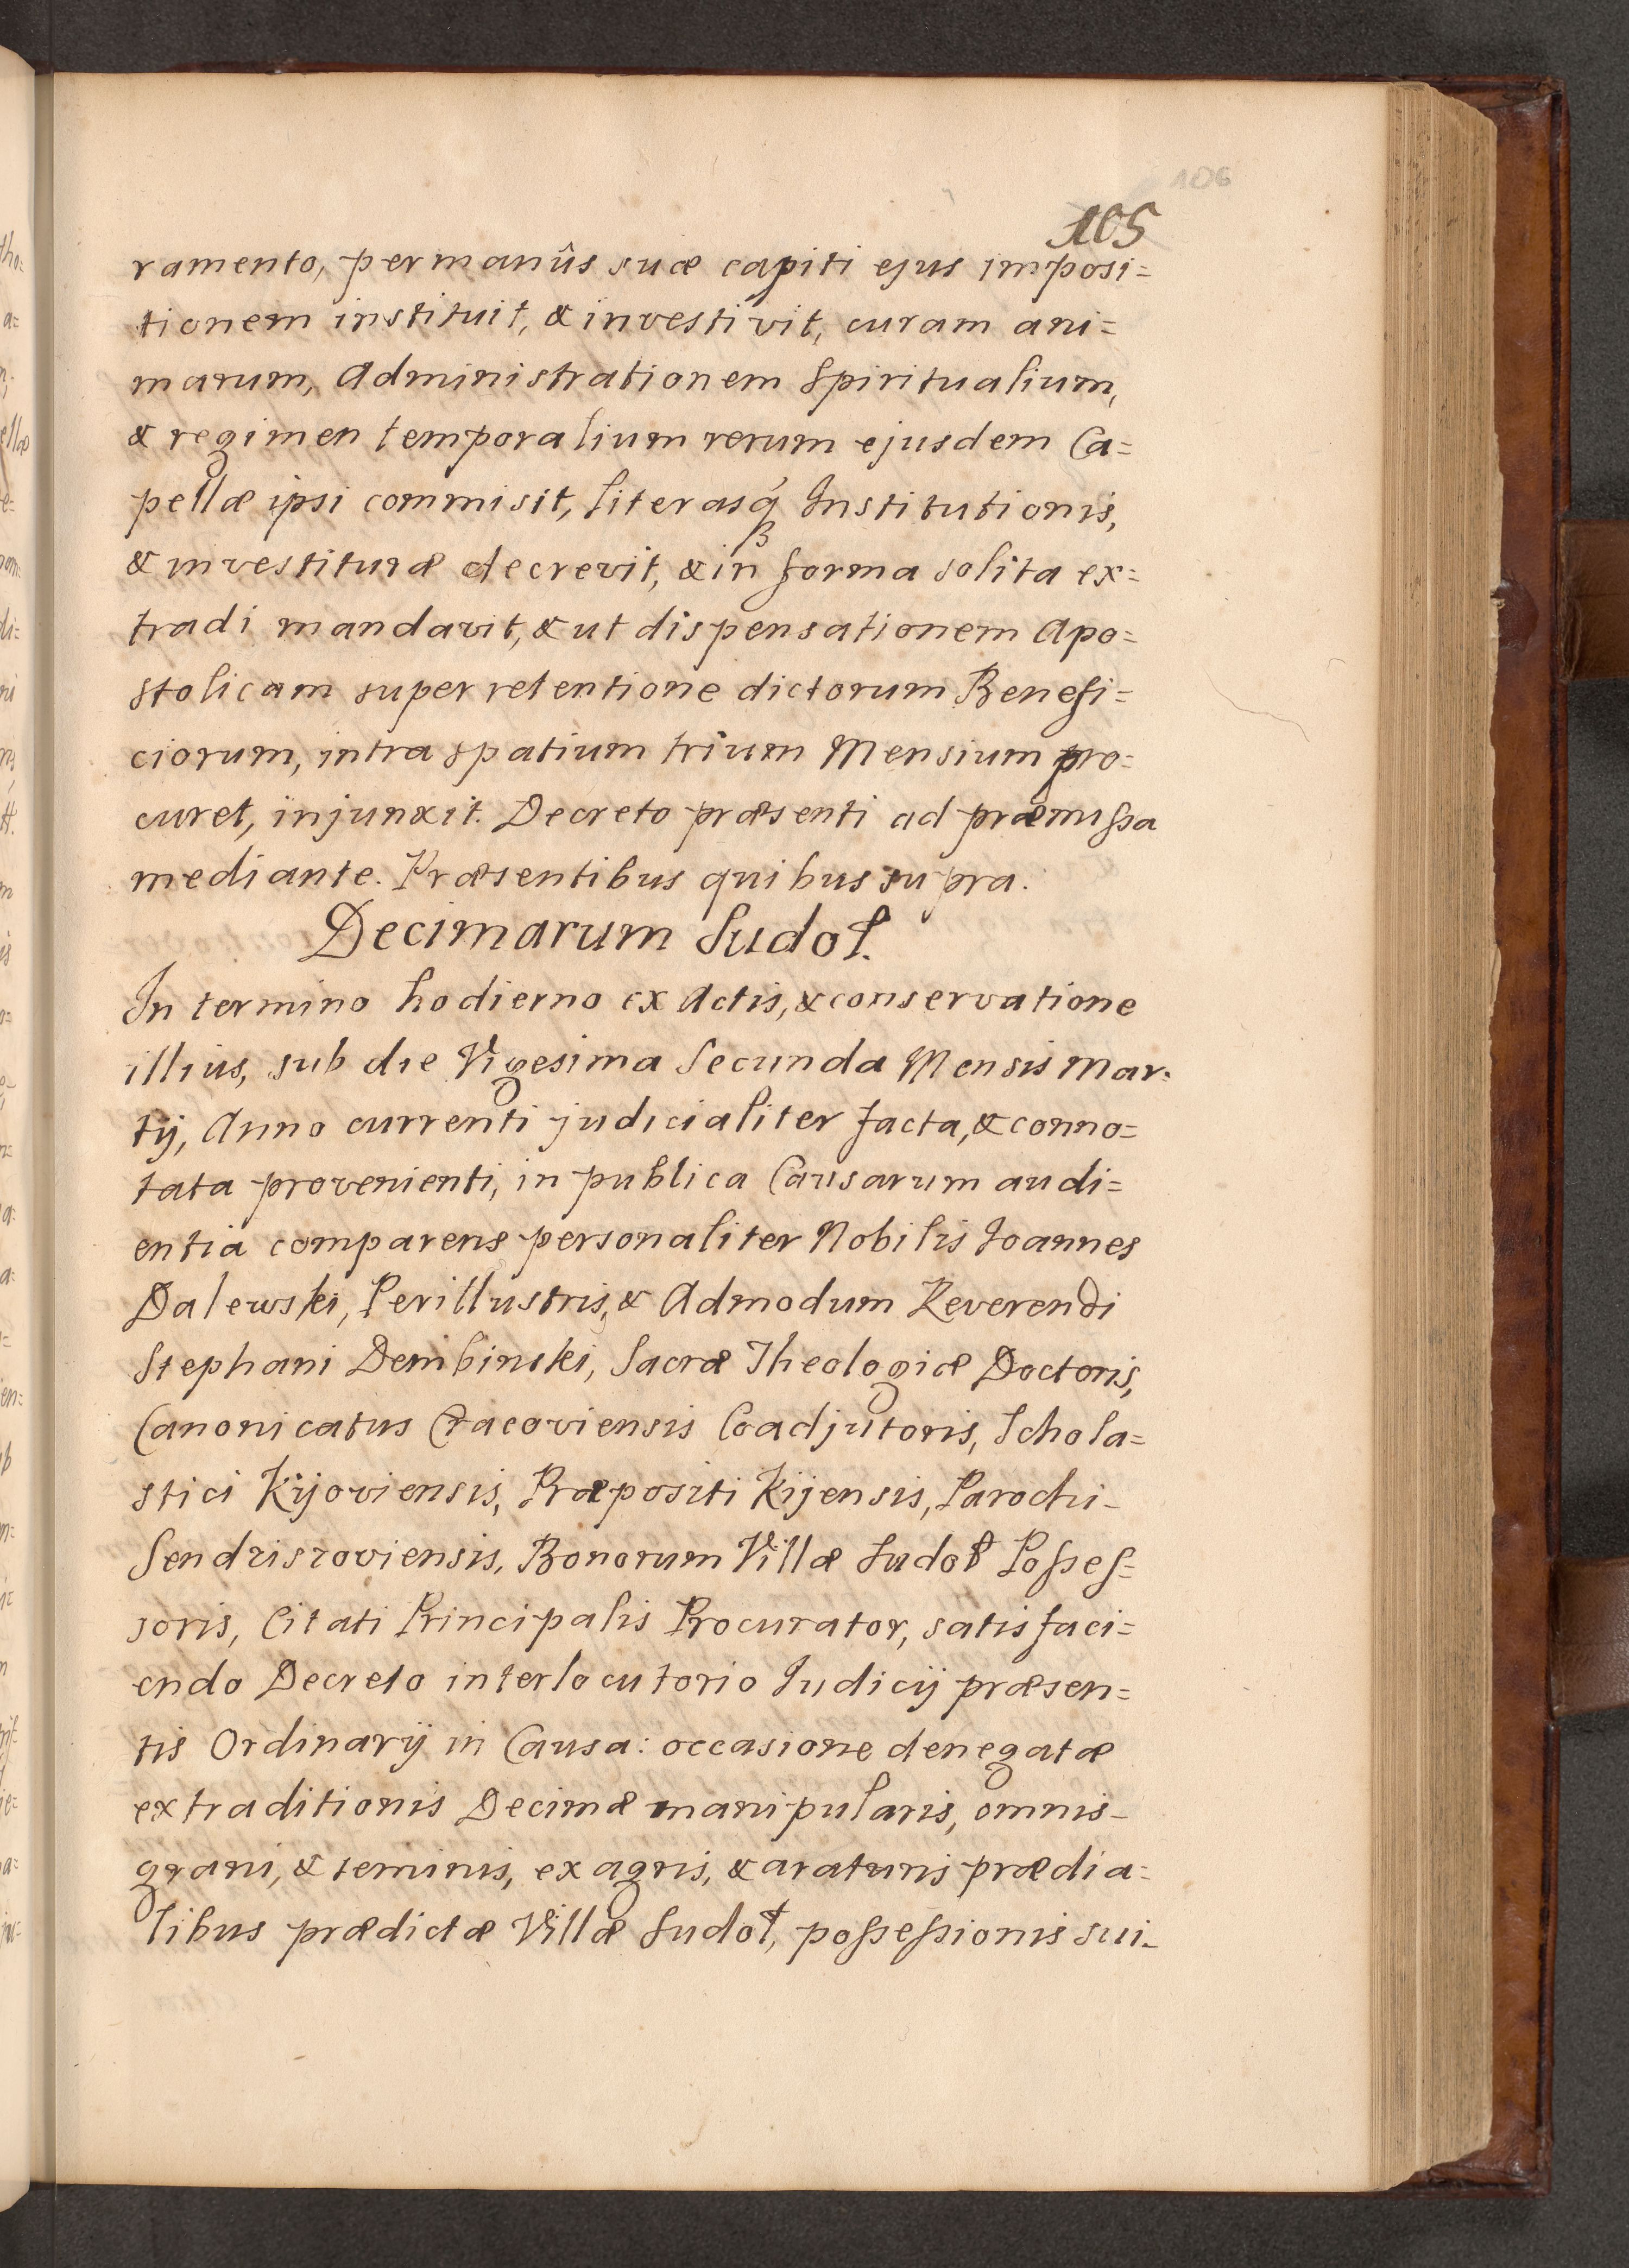 106
105
ramento, per manûs suæ capiti ejus imposi=
tionem instituit, & investivit, curam ani=
marum, Administrationem Spiritualium,
& regimen temporalium rerum ejusdem Ca=
pellæ ipsi commisit, literasq́ Institutionis,
& investituræ decrevit, & in forma solita ex=
tradi mandavit, & ut dispensationem Apo=
stolicam super retentione dictorum Benefi=
ciorum, intra spatium trium Mensium pro=
curet, injunxit. Decreto præsenti ad præmissa
mediante. Præsentibus quibus supra.
Decimarum Sudoł.
In termino hodierno ex Actis, & conservatione
illius, sub die Vigesima Secunda Mensis Mar.
tij, Anno currenti judicialiter facta, & conno=
tata provenienti, in publica Causarum audi=
entia comparens personaliter Nobilis Joannes
Dalewski, Perillustris, & Admodum Reverendi
Stephani Dembinski, Sacræ Theologiæ Doctoris,
Canonicatus Cracoviensis Coadjutoris, Schola=
stici Kijoviensis, Præpositi Kijensis, Parochi-
Sendziszoviensis, Bonorum Villæ Sudoł Posses=
soris, Citati Principalis Procurator, satisfaci=
endo Decreto interlocutorio Judicij præsen=
tis Ordinarij in Causa: occasione denegatæ
extraditionis Decimæ manipularis, omnis-
grani, & seminis, ex agris, & araturis prædia=
libus prædictæ Villæ Sudoł, possessionis sui-